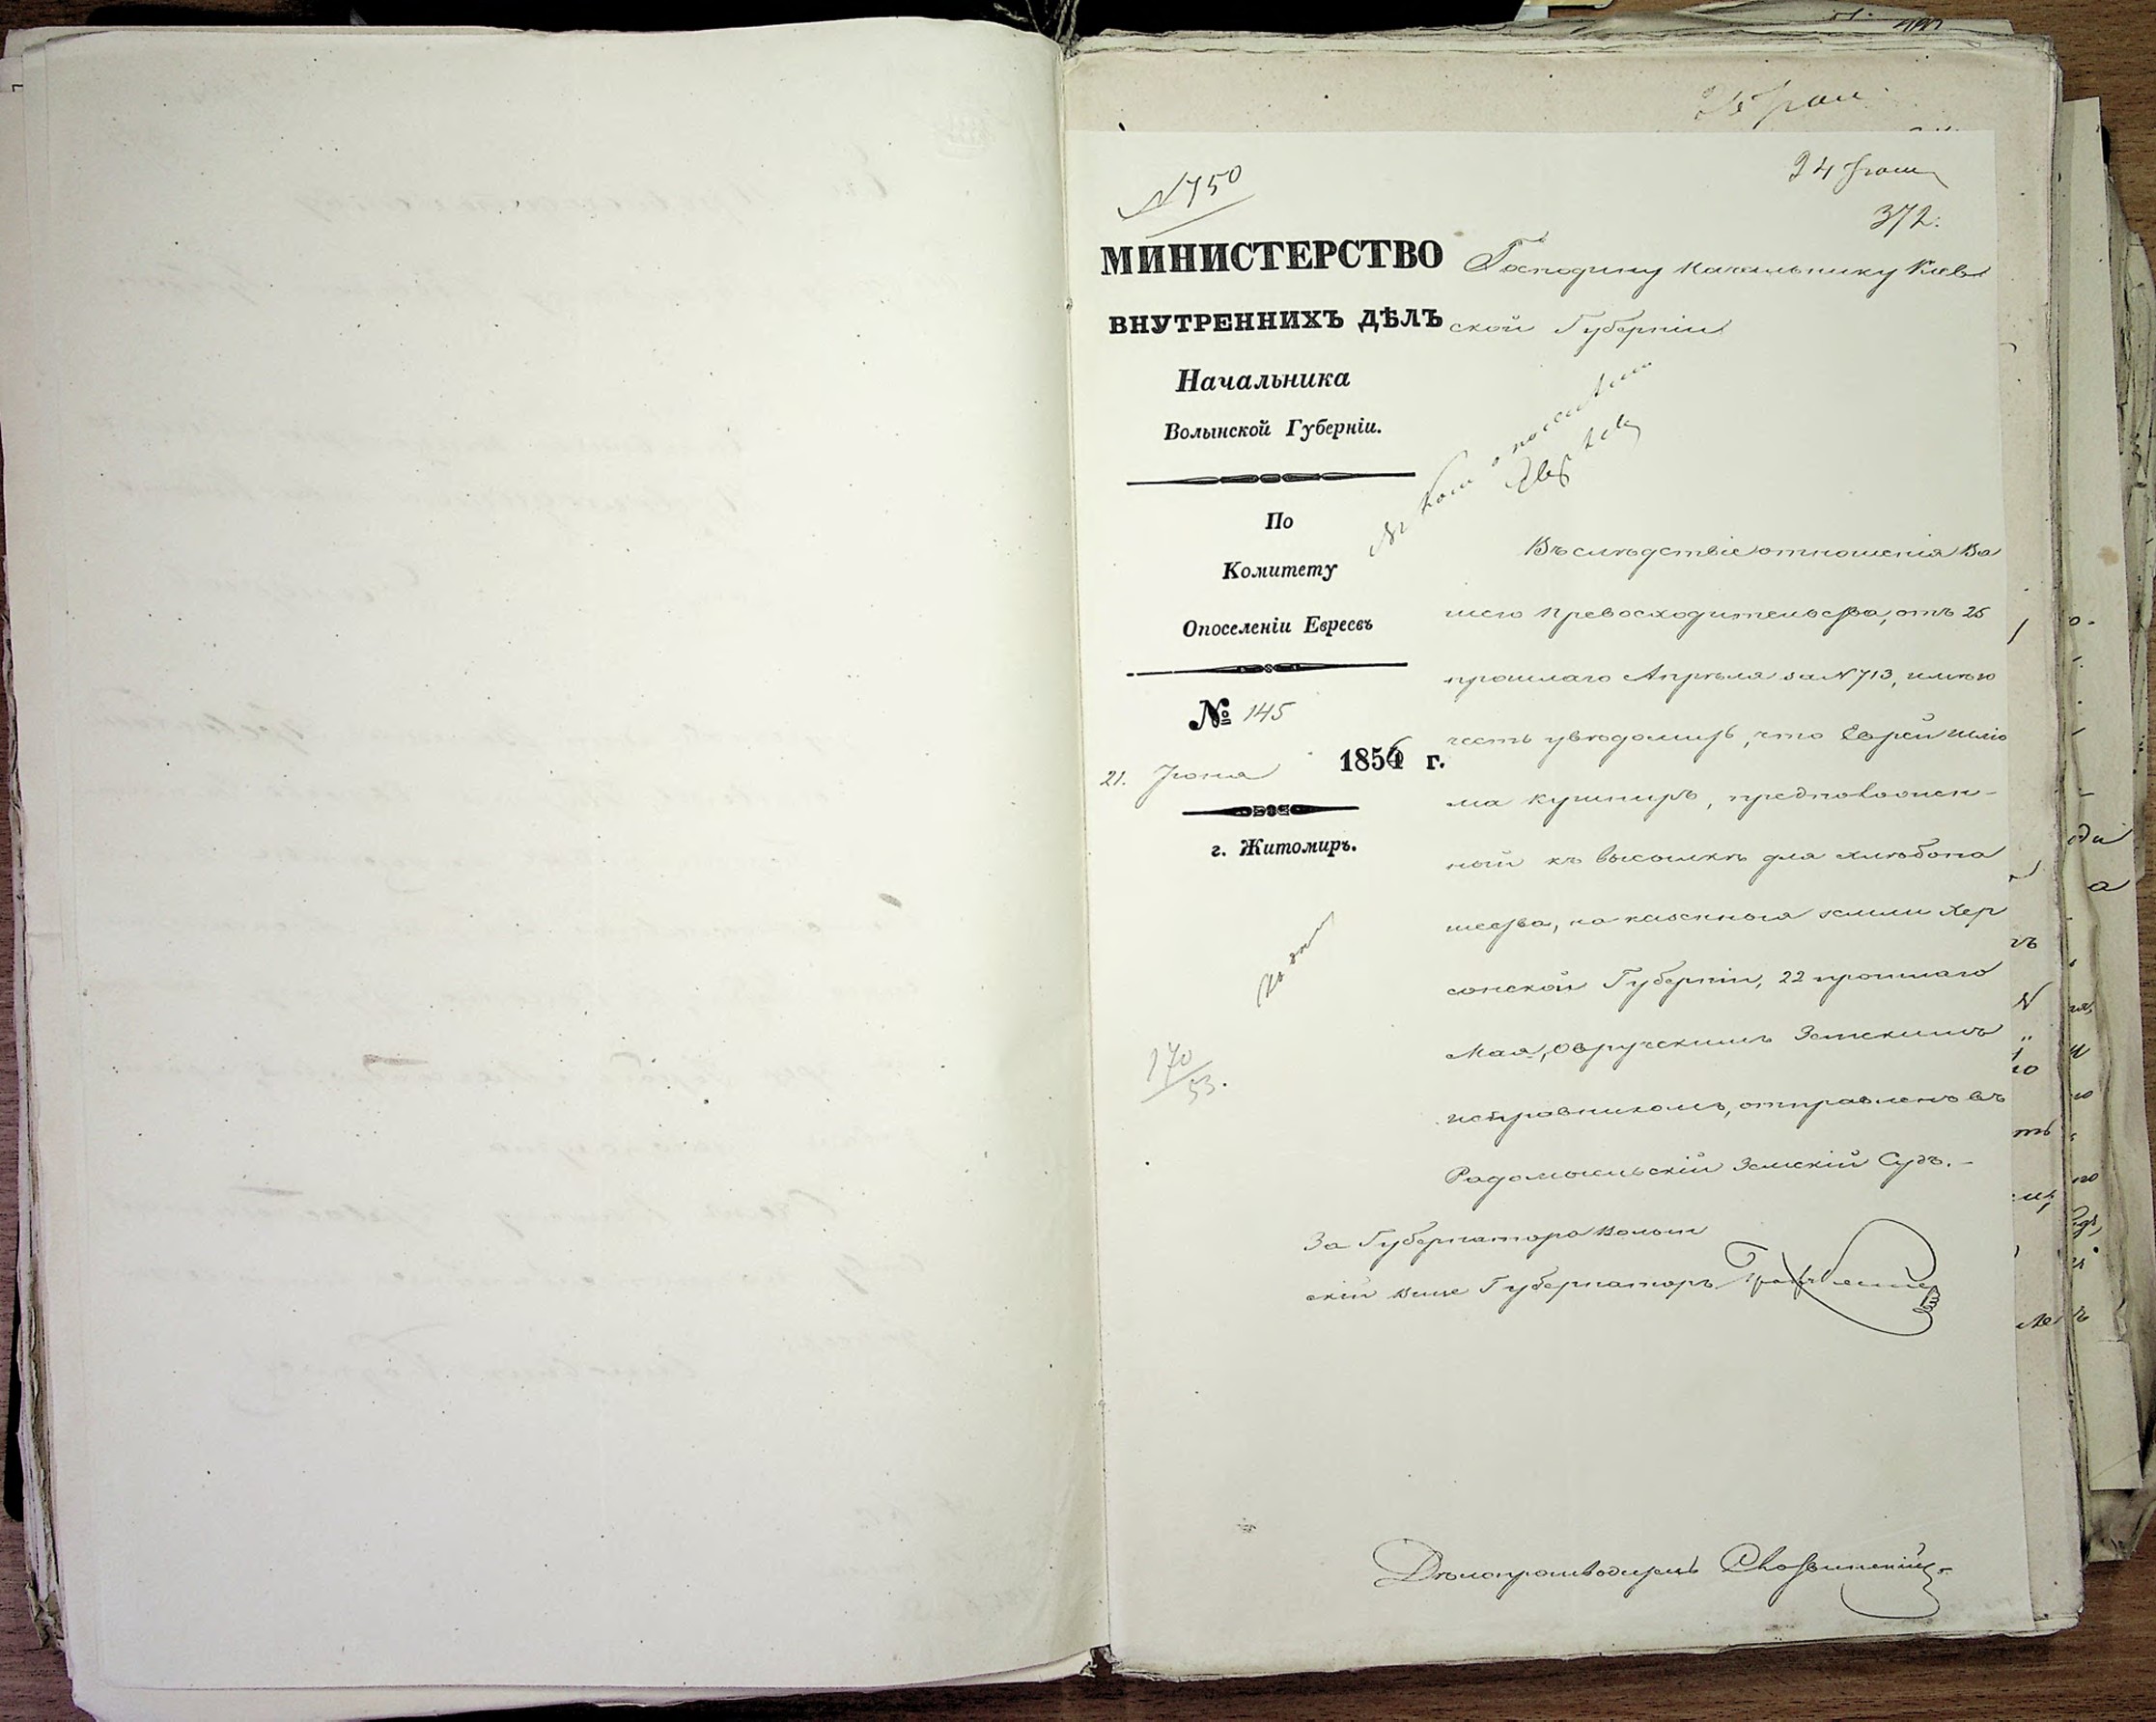 24 Іюня
372.
№ 750
МИНИСТЕРСТВО
ВНУТРЕННИХЪ ДѢЛЪ
Начальника
Волынской Губерніи.
По
Комитету
Опоселеніи Евреевъ
№ 145
21. Іюня 1854 г.
г. Житомиръ.
170/53.
Господину Начальнику Кіев
ской Губерніи
о поселеніи
Евреевъ
Въ слѣдствіе отношенія Ва
шего Превосходительства, отъ 25
прошлаго Апрѣля за № 713, имѣю
честь увѣдомить, что Еврей Шлио
ма Кушниръ, предположен-
ный къ высылкѣ для хлѣбопа
шества, на казенныя земли Хер
сонской Губерніи, 22 прошлаго
Мая, Овручскимъ Земскимъ
исправникомъ, отправленъ въ
Радомысльскій Земскій Судъ.-
За Губернатора Волын
скій Вице Губернаторъ
Дѣлопроизводитель